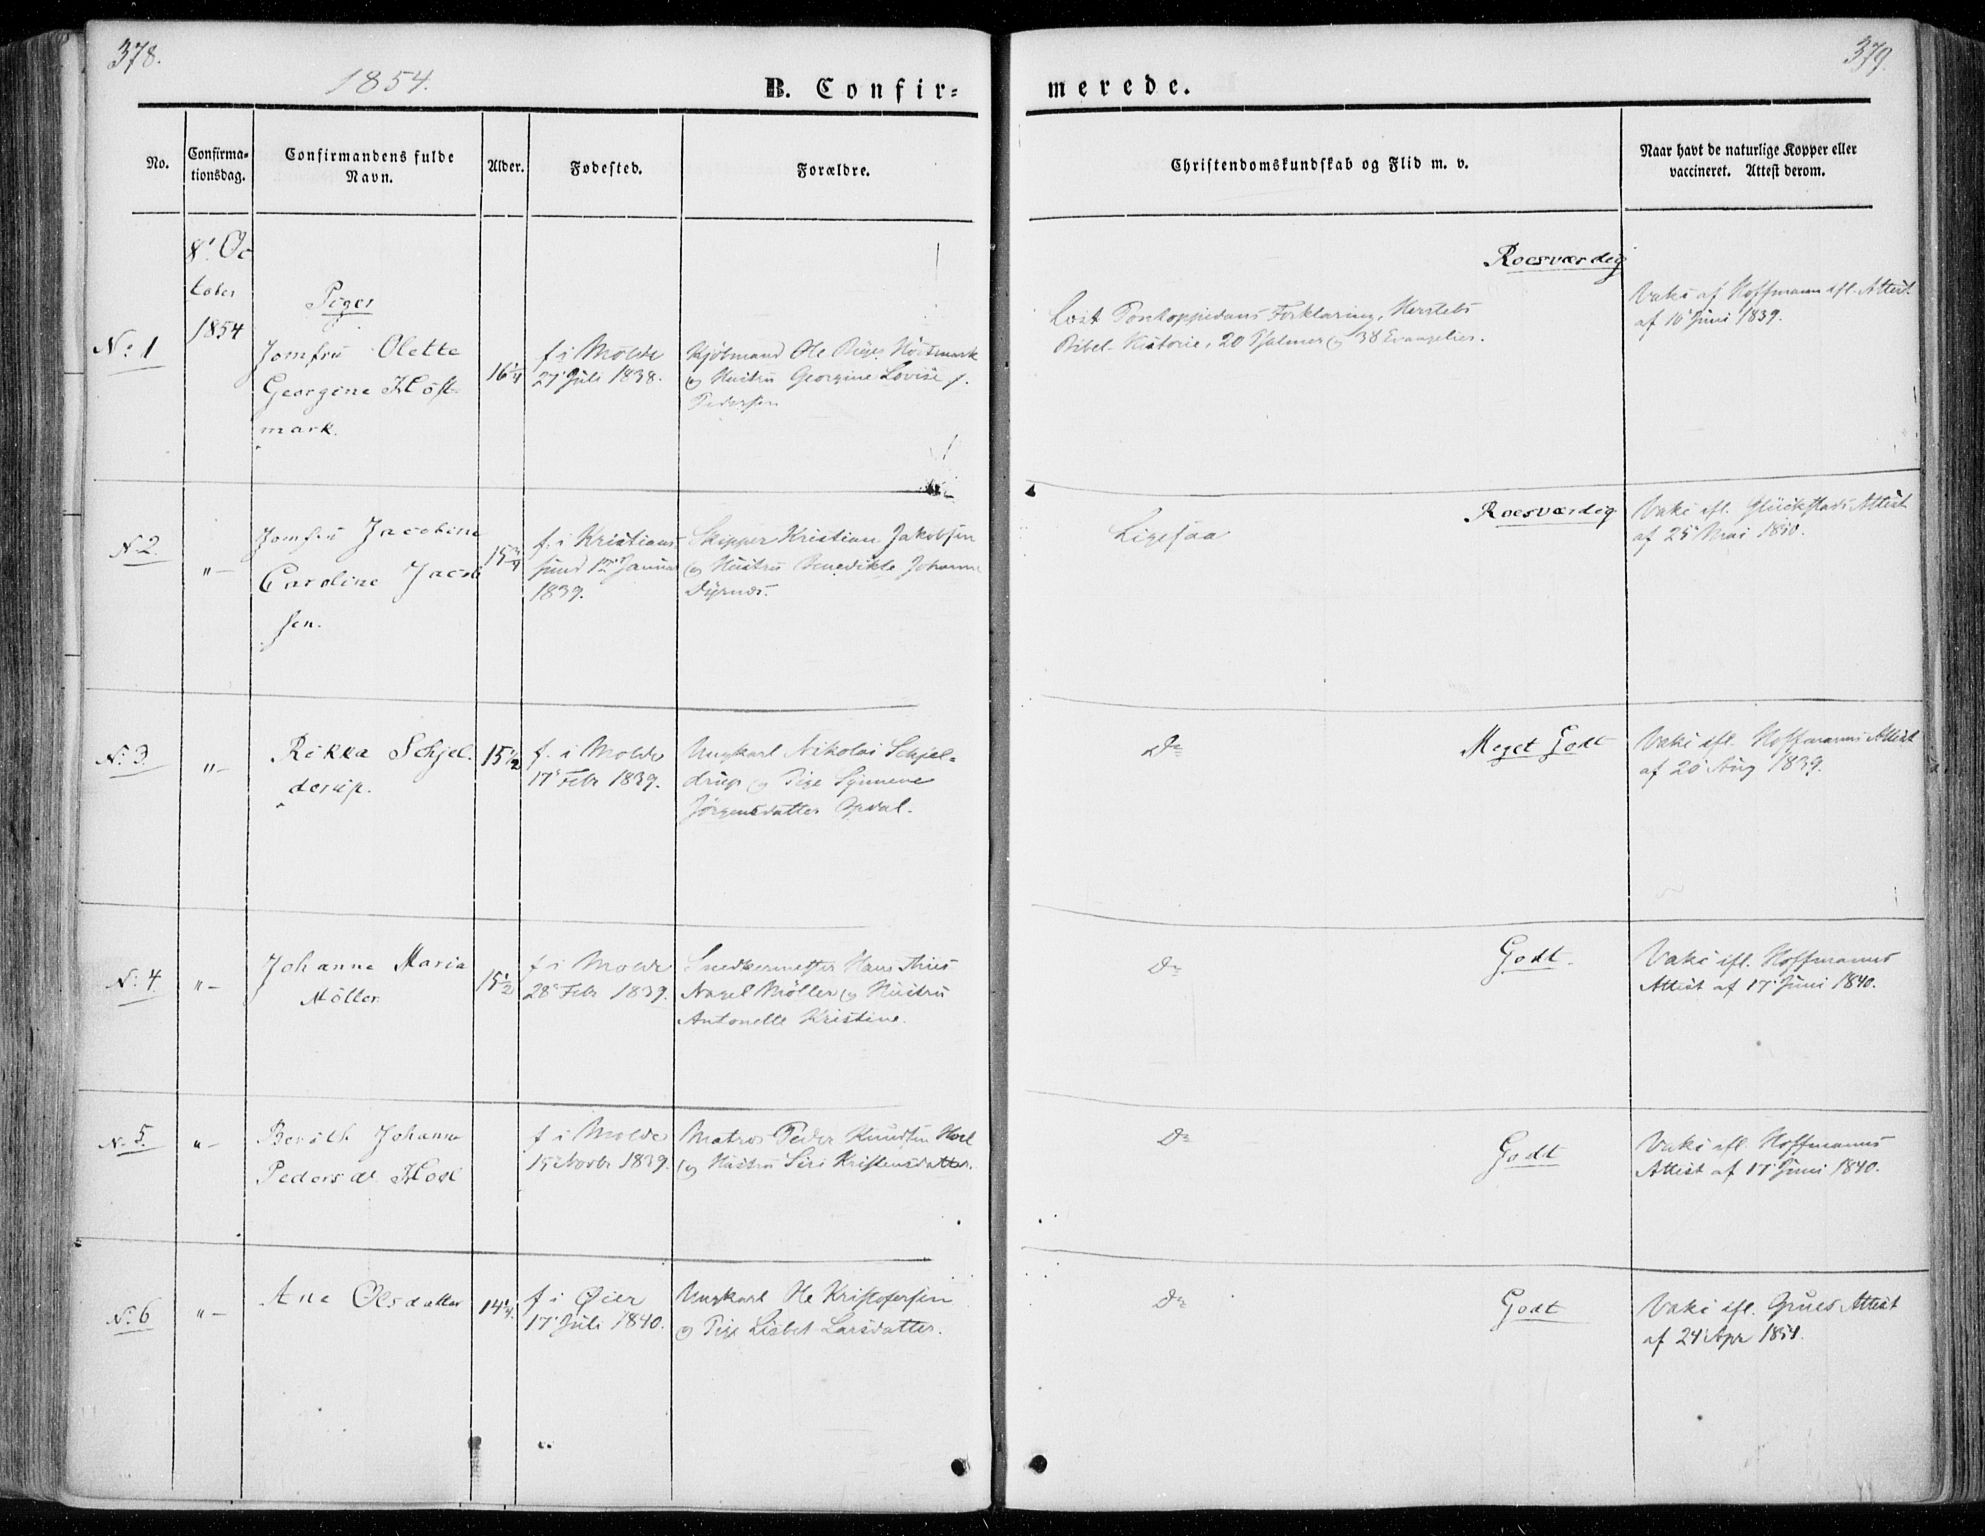 378.
1854.
B. Confir=
No.
Confirma-
tionsdag.
Confirmandens fulde
Navn.
Alder.
Fødested.
Forældre.
8' Oc
tober
1854
Piger
No 1
Jomfru Olette
Georgine Høst
mark.
16 1/4
f i Molde
27' Juli 1838.
Kjøbmand Ole Høstmark
og Hustru Georgine Lovise f.
Pedersen
No 2
"—
Jomfru Jacobine
Caroline Jacob
sen.
15 3/4
f. i Kristians
sund 12' Januar
1839.
Skipper Kristian Jakobsen
og Hustru Benedikte Johanne
Dyrnes.
No 3
"—
Rikka Schjel
derup.
15 1/2
f. i Molde
17' Febr 1839.
Ungkarl Nikolai Schjel=
drup og Pige Synneve
Jørgensdatter Opdal.
No 4
"—
Johanna Maria
Møller
15 1/2
f i Molde
28' Febr 1839.
Snedkermester Hans Thiis
Nagel Møller og Hustru
Antonette Kristine.
No 5.
"—
Berith Johanna
Pedersdr Hoel
f i Molde
15' Novbr 1839.
Matros Peder Knudsen Hoel
og Hustru Siri Kristensdatter.
No 6
"—
Ane Olsdatter
14 1/4
f i Øier
17' Juli 1840.
Ungkarl Ole Kristofersen
og Pige Lisbet Larsdatter.
379.
merede.
Christendomskundskab og Flid m. v.
Naar havt de naturlige Kopper eller
vaccineret. Attest derom.
Roesværdig
Læst Pontoppidans Forklaring, Herslebs
Bibel-Historie, 20 Psalmer og 38 Evangelier.
Vaks af Hoffmann ifl. Attest
af 16' Juni 1839.
Roesværdig
Ligesaa
Vaks ifl. Glückstads Attest
af 25' Mai 1850.
Do
Meget Godt
Vaks ifl. Hoffmanns Attest
af 20' Aug 1839.
Do
Godt.
Vaks ifl. Hoffmanns
Attest af 17' Juni 1840.
Do
Godt
Vaks ifl. Hoffmanns
Attest af 17' Juni 1840.
Do
Godt
Vaks ifl. Grues Attest
af 24' Apr 1854.